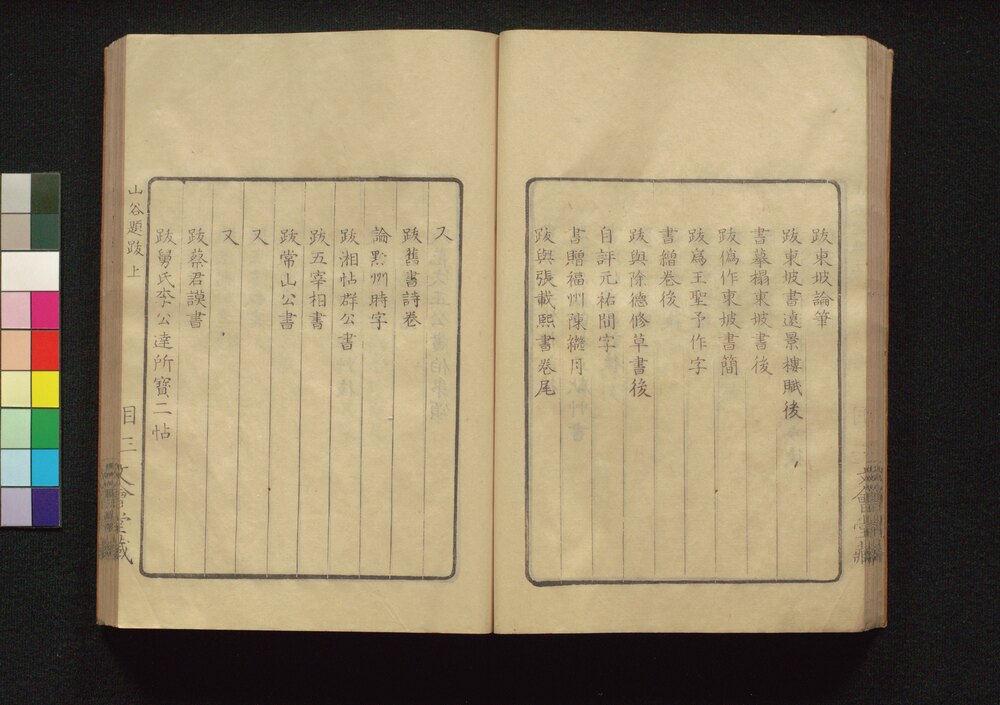 跋東坡論筆
跋東坡書遠景樓賦後
書摹搨東坡書後
跋偽作東坡書簡
跋爲王聖予作字
書繒卷後
跋與徐德修草書後
自評元祐間字
書贈福州陳繼月
跋與張載熙書卷尾
又
跋舊書詩卷
論黔州時字
跋湘帖群公書
跋五宰相書
跋常山公書
又
又
跋蔡君謨書
跋舅氏李公達所寶二帖
山谷題跋 上
目三
文會堂藏